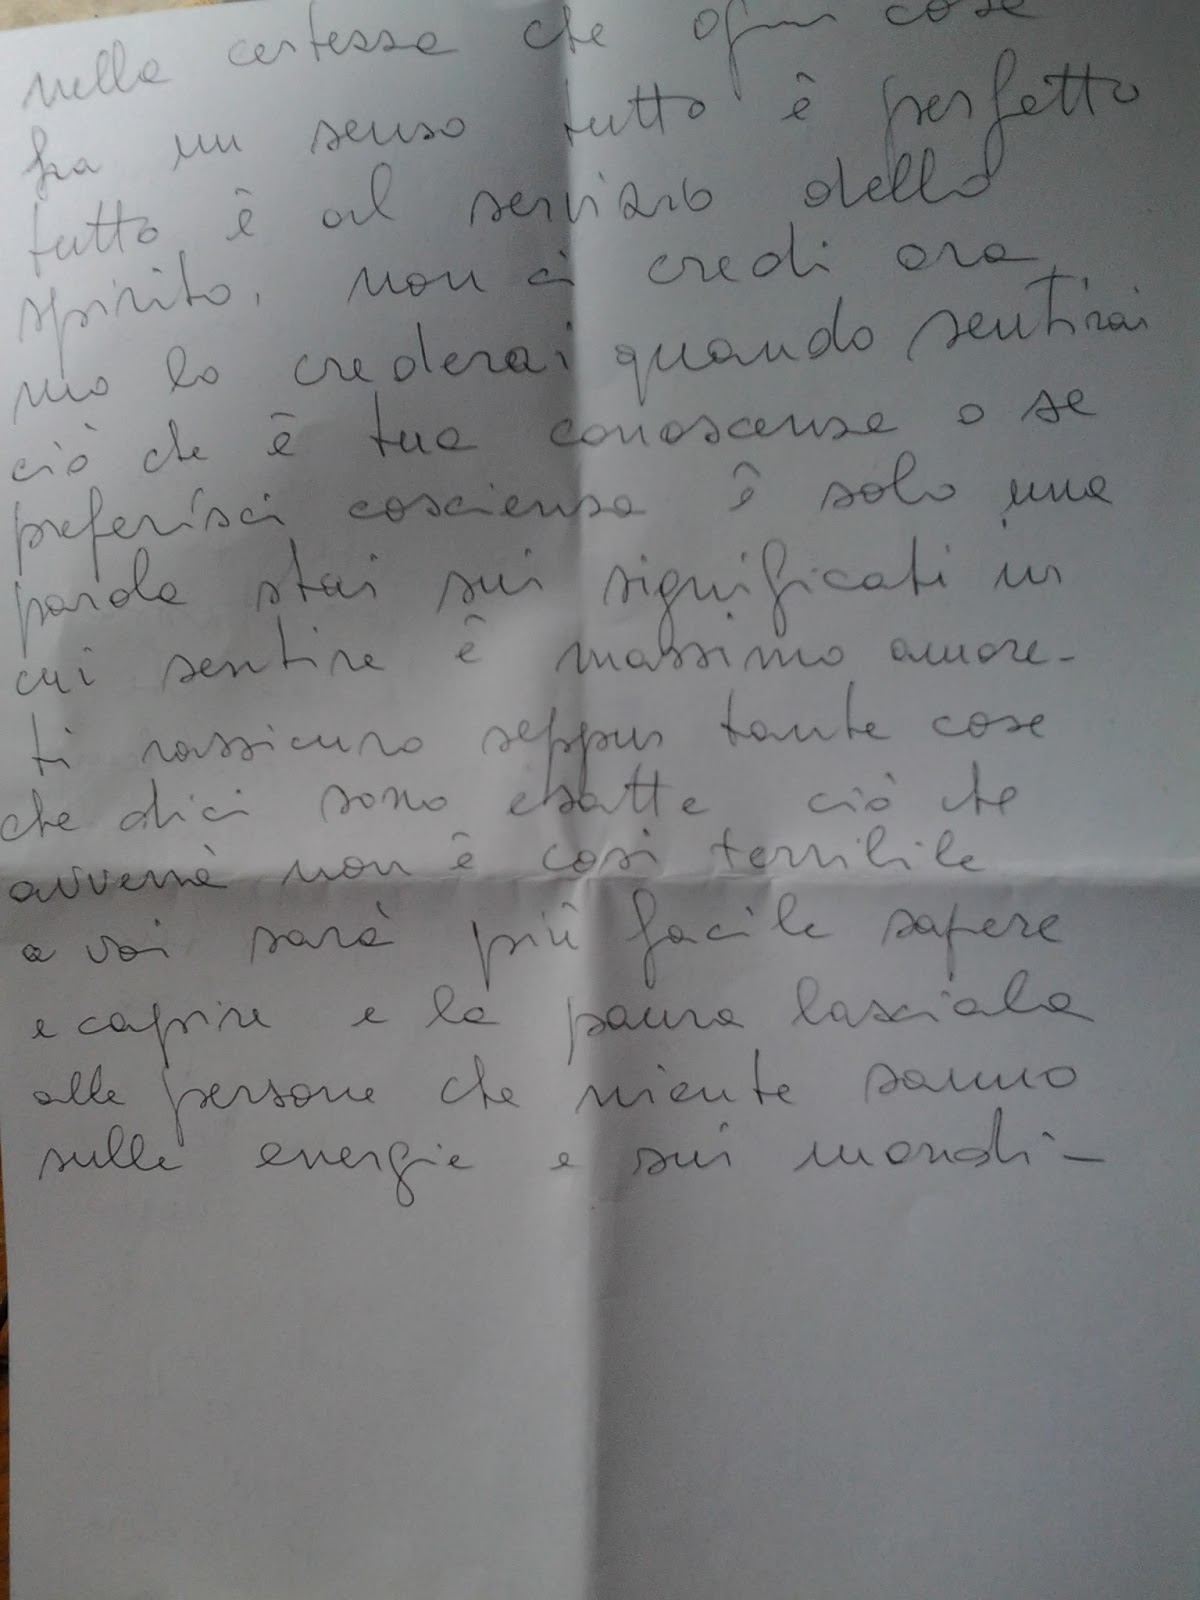 nella certezza che ogni cosa
ha un senso tutto è perfetto
tutto è al servizio dello
spirito, non ci credi ora
ma lo crederai quando sentirai
ciò che è tua conoscenza o se
preferisci coscienza è solo una
parola stai sui significati in
cui sentire è massimo amore-
ti rassicuro seppur tante cose
che dici sono esatte ciò che
avverrà non è così terribile
a voi sarà più facile sapere
e capire e la paura lasciala
alle persone che niente sanno
sulle energie e sui mondi-